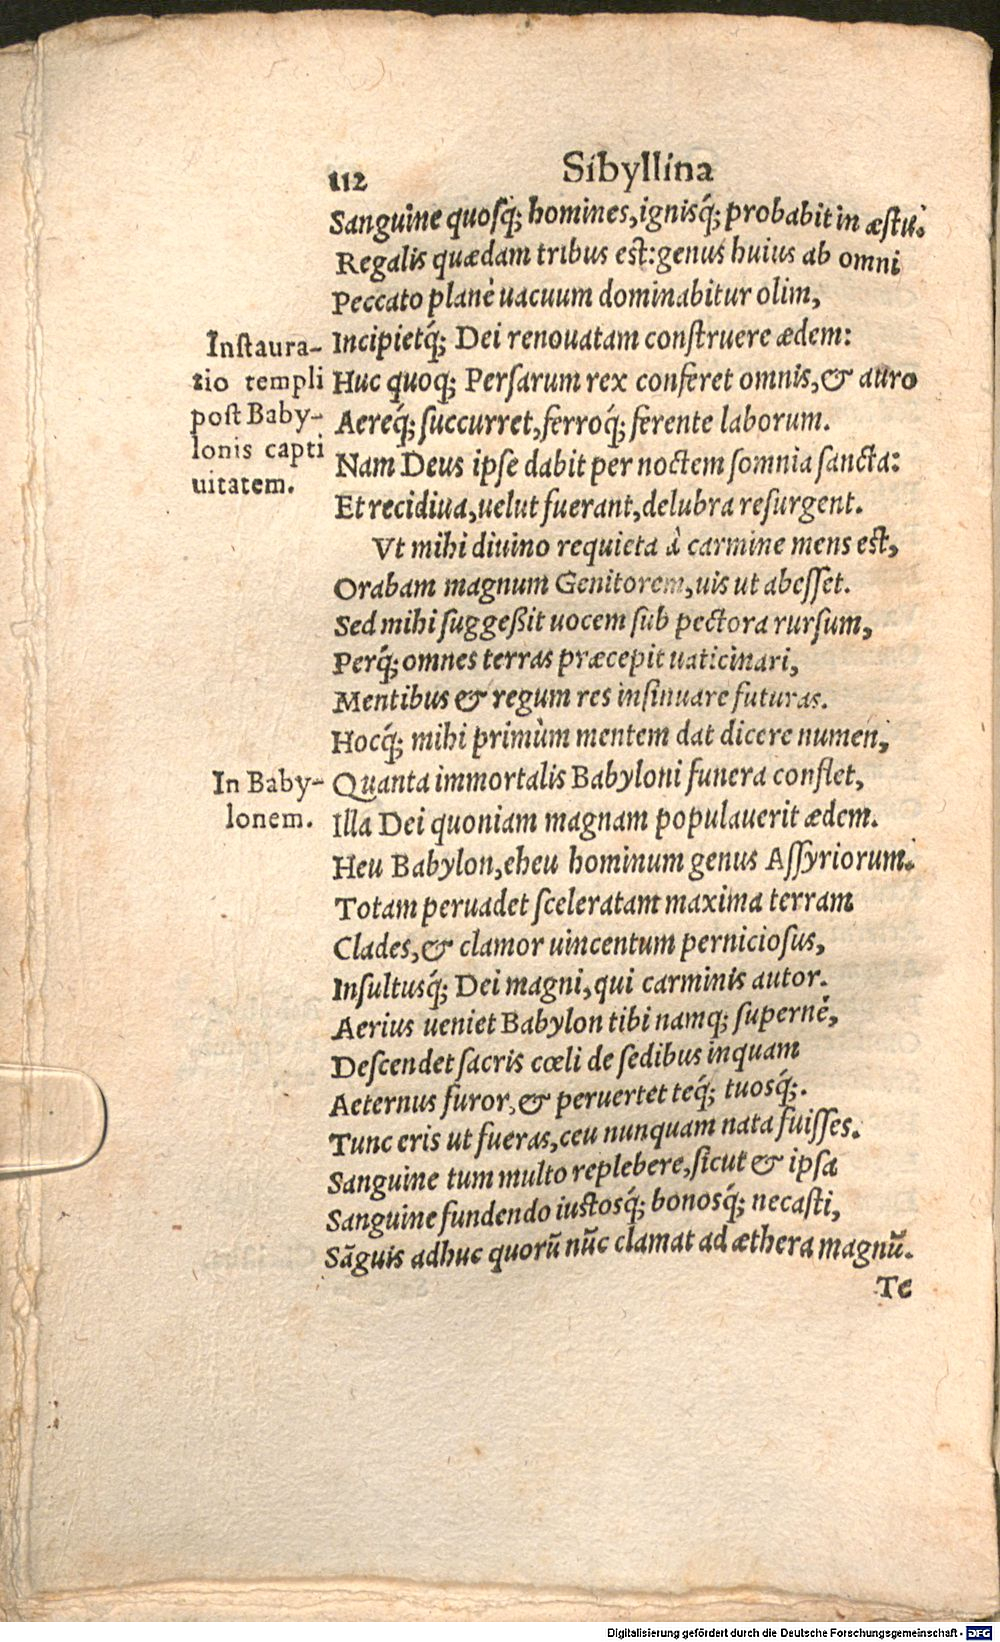 112 Sibyllina
Sanguine quosq́; homines, ignisq́; probabit in æstu.
Regalis quædam tribus est: genus huius ab omni
Peccato planè uacuum dominabitur olim,
Incipietq́; Dei renouatam construere ædem:
Huc quoq; Persarum rex conferet omnis, & auro
Aereq́; succurret, ferroq́; ferente laborum.
Nam Deus ipse dabit per noctem somnia sancta:
Et recidiua, uelut fuerant, delubra resurgent.
Instaura-
tio templi
post Baby-
lonis capti
uitatem.
Vt mihi diuino requieta à carmine mens est,
Orabam magnum Genitorem, uis ut abesset.
Sed mihi suggeßit uocem sub pectora rursum,
Perq́; omnes terras præcepit uaticinari,
Mentibus & regum res insinuare futuras.
Hocq́; mihi primùm mentem dat dicere numen,
Quanta immortalis Babyloni funera conflet,
Illa Dei quoniam magnam populauerit ædem.
In Baby-
lonem.
Heu Babylon, eheu hominum genus Assyriorum.
Totam peruadet sceleratam maxima terram
Clades, & clamor uincentum perniciosus,
Insultusq́; Dei magni, qui carminis autor.
Aerius ueniet Babylon tibi namq; supernè,
Descendet sacris cœli de sedibus inquam
Aeternus furor, & peruertet teq́; tuosq́;.
Tunc eris ut fueras, ceu nunquam nata fuisses.
Sanguine tum multo replebere, sicut & ipsa
Sanguine fundendo iustosq́; bonosq́; necasti,
Sãguis adhuc quorũ nũc clamat ad æthera magnũ.
Te
Digitalisierung gefördert durch die Deutsche Forschungsgemeinschaft - DFG